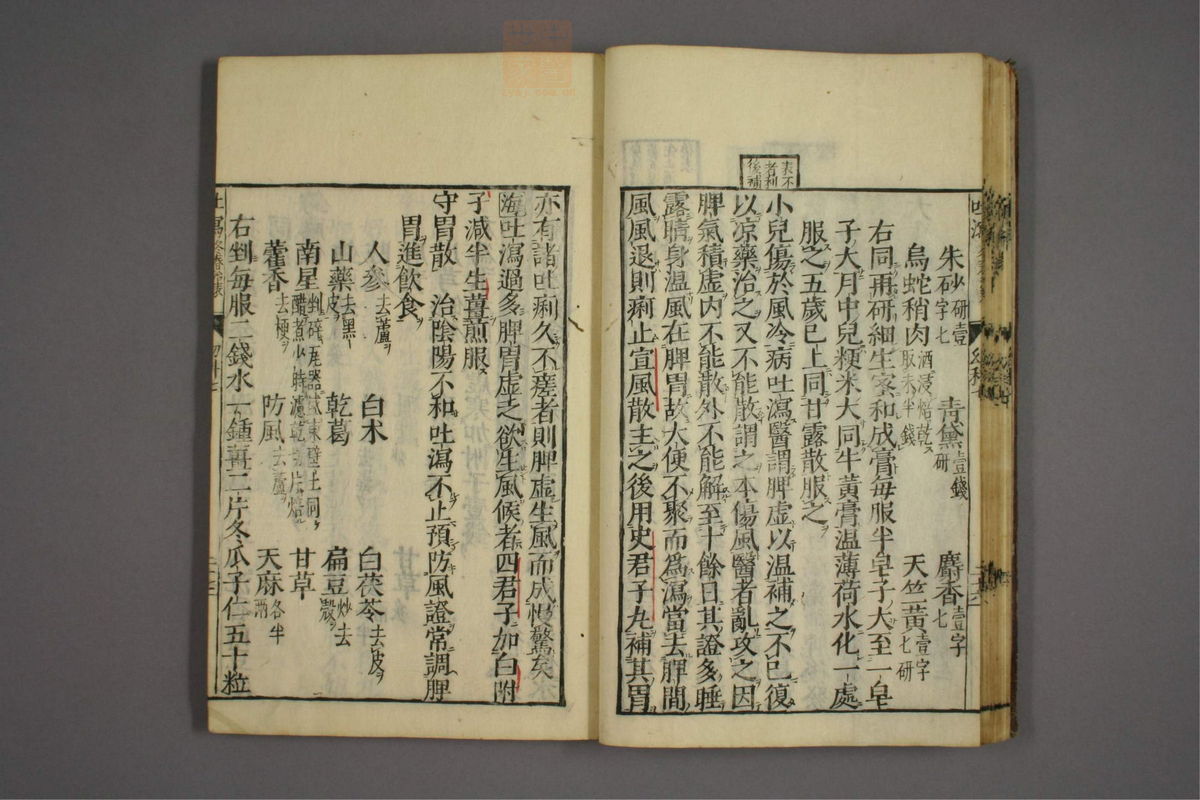 表不
者利
後補
朱砂研壹字七 青黛壹錢研 麝香壹字七
烏蛇稍肉酒浸焙乾取末半錢 天竺黃壹字七研
右同再研細生蜜和成膏每服半皂子大至一皂
子大月中兒粳米大同牛黃膏温薄荷水化一處
服之五歲已上同甘露散服之
小兒傷於風冷病吐瀉醫謂脾虛以温補之不已復
以凉藥治之又不能散謂之本傷風醫者亂攻之因
脾氣積虛内不能散外不能解至十餘日其證多睡
露睛身温風在脾胃故大便不聚而爲瀉當去脾間
風風退則痢止宣風散主之後用史君子丸補其胃
亦有諸吐痢久不瘥者則脾虛生風而成慢驚矣
吐瀉過多脾胃虛乏欲生風候者四君子加白附
子減半生薑煎服
守胃散 治陰陽不和吐瀉不止預防風證常調脾
胃進飲食
人參去蘆 白朮 白茯苓去皮
山藥去黑皮 乾葛 扁豆炒去殼
南星剉碎瓦器盛東壁土同醋煮少時濾乾切片焙 甘草
藿香去梗 防風去蘆 天麻各半兩
右剉每服二錢水一鍾薑二片冬瓜子仁五十粒